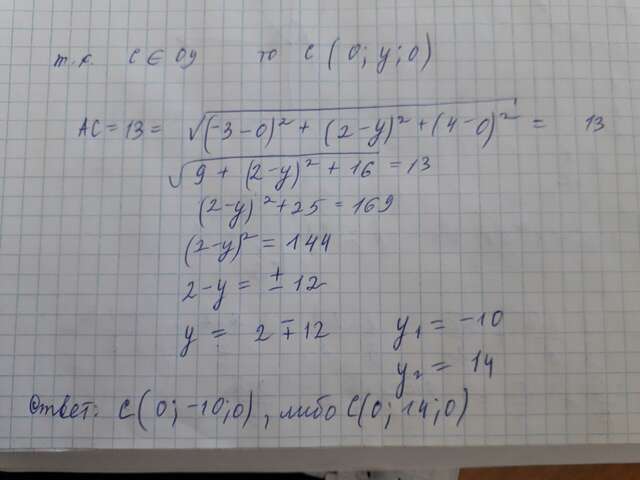 т.к. C ∈ Oy то C (0; y; 0)
AC = 13 = √(-3-0)² + (2-y)² + (4-0)² = 13
√9 + (2-y)² + 16 = 13
(2-y)² + 25 = 169
(2-y)² = 144
2-y = ±12
y = 2 ∓ 12 y₁ = -10
y₂ = 14
Ответ: C(0; -10; 0), либо C(0; 14; 0)